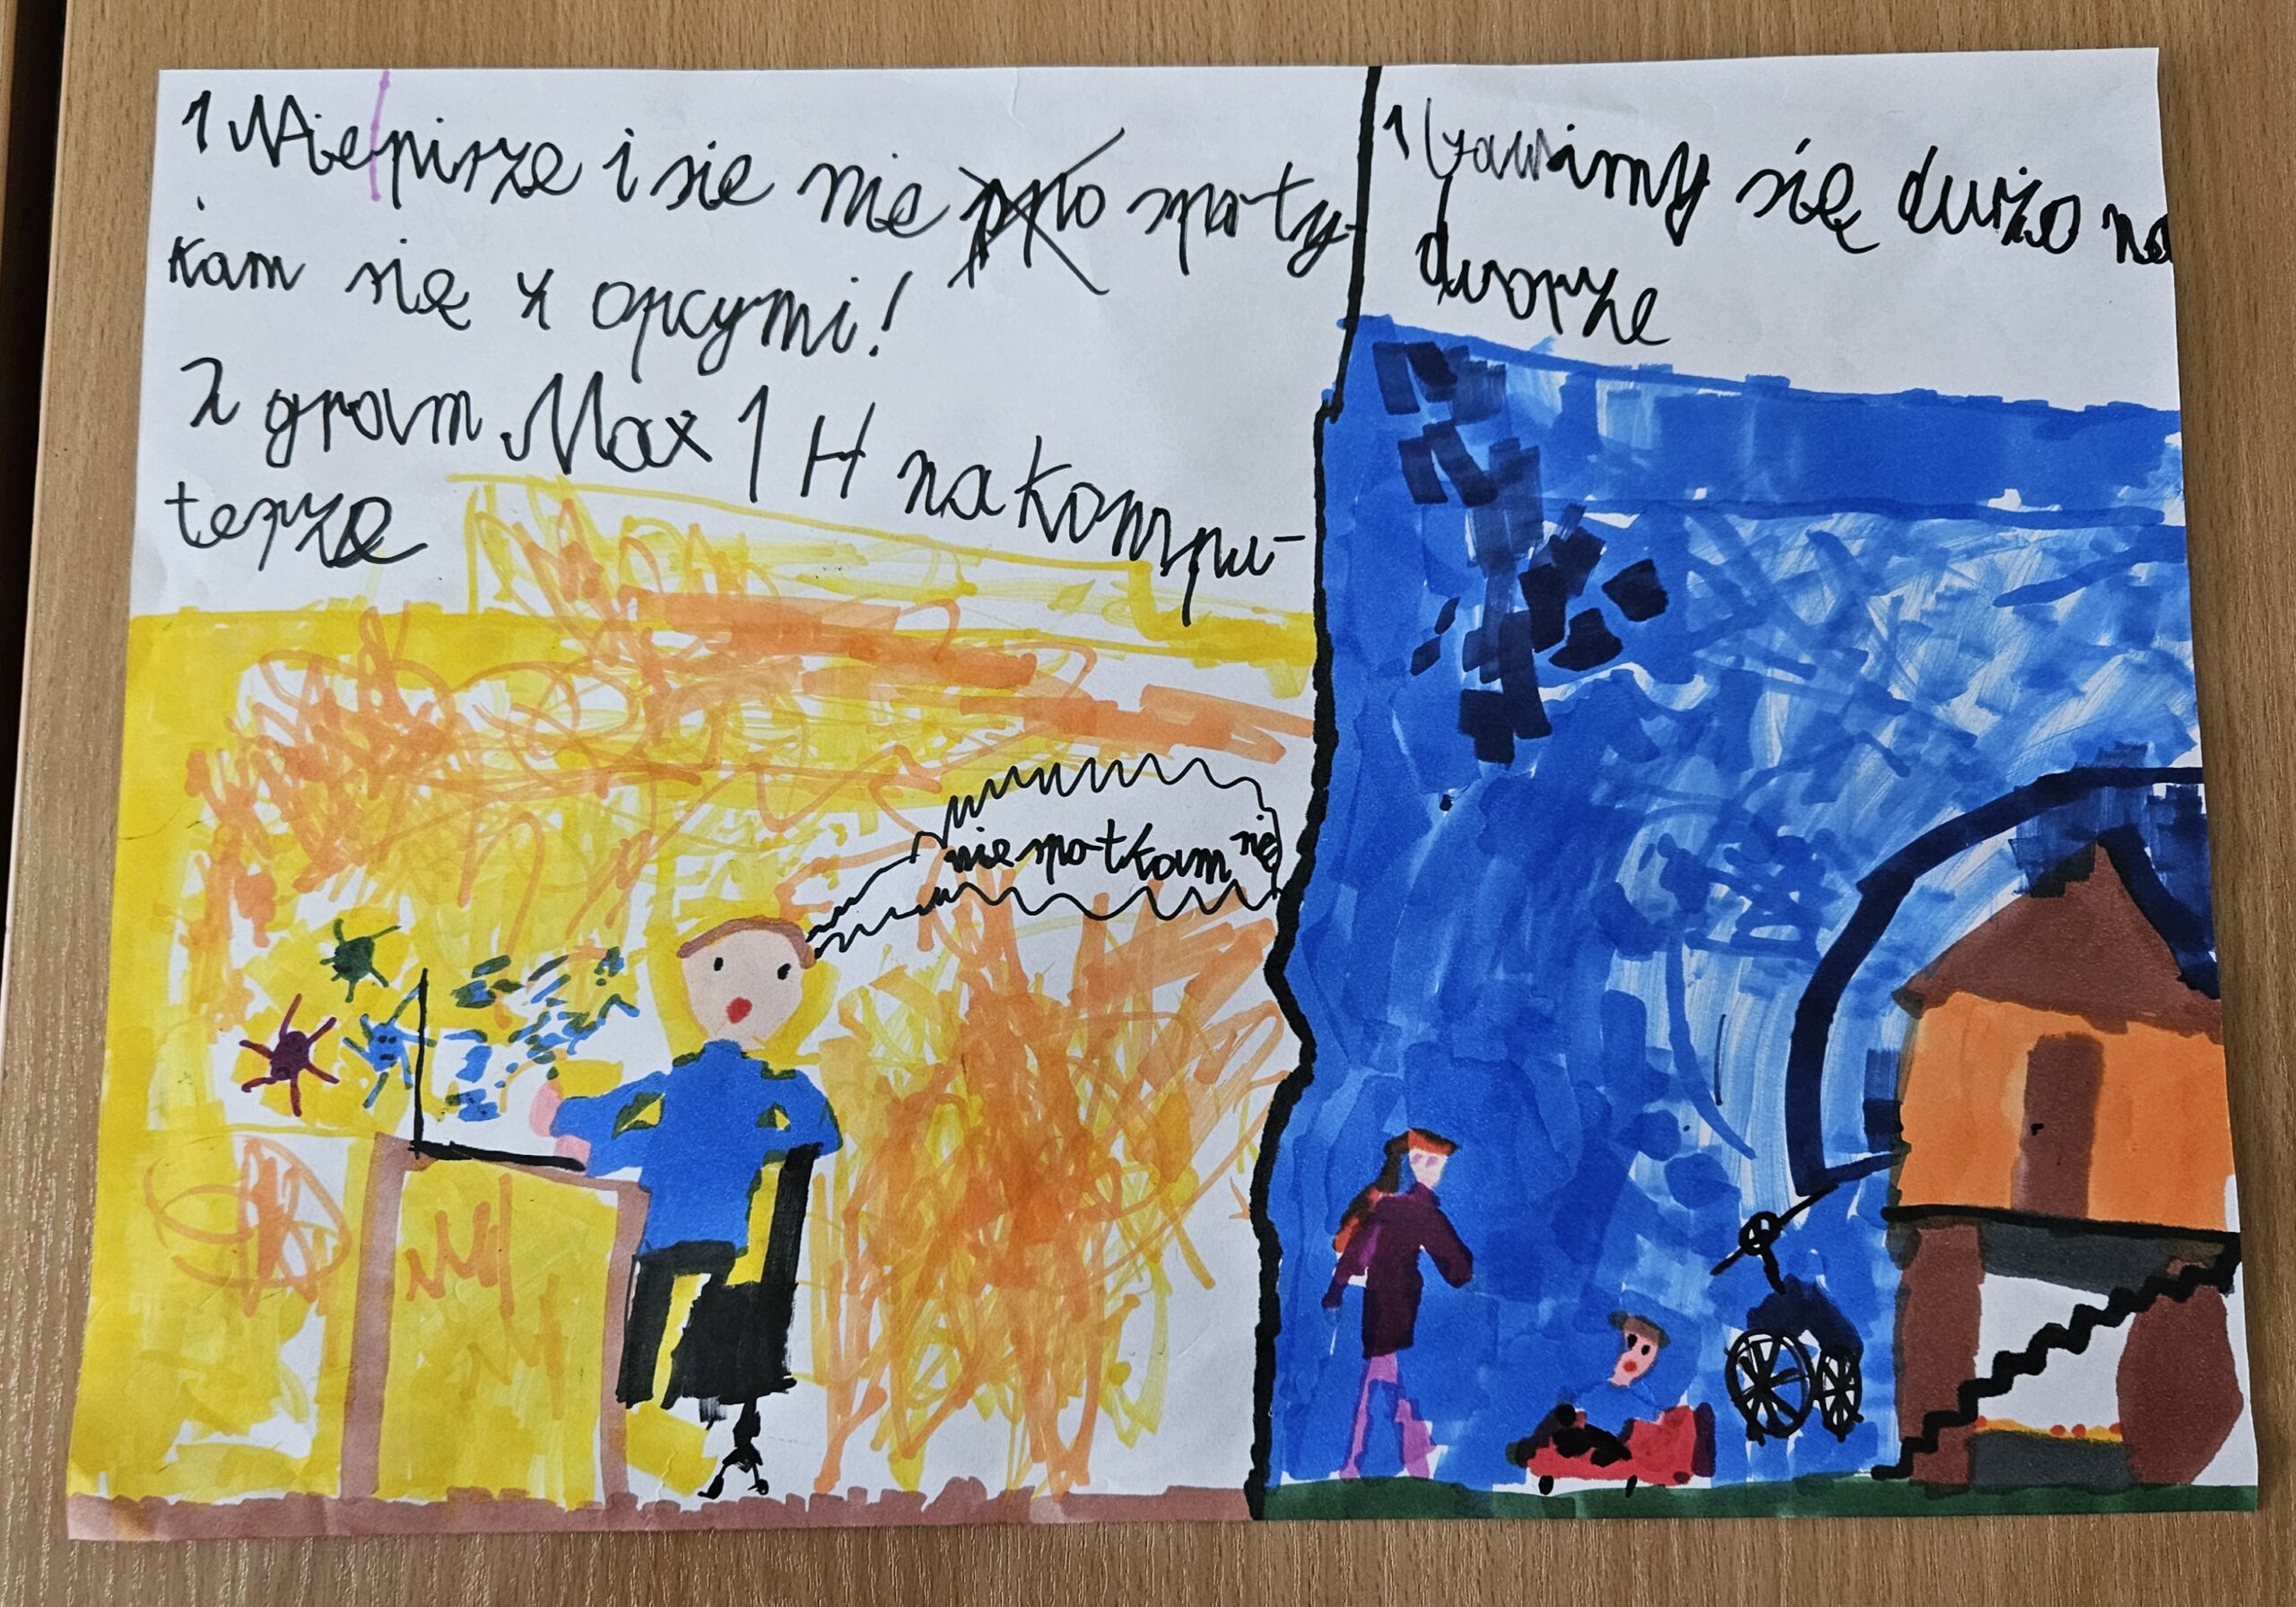 1 Nie pisze i sie nie spoty-
kam się z opcymi!
2 gram Max 1 H na kompu-
terze
nie spotkam się
1 bawimy się dużo na
dworze